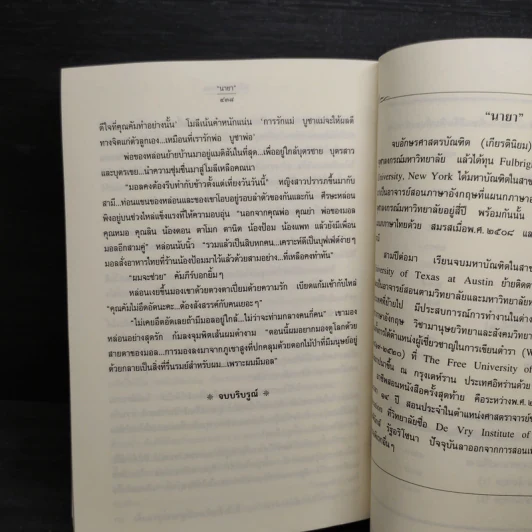 "นายา"
๔๓๘
ดีใจที่คุณคัมทำอย่างนั้น' ไมลีเน้นคำหนักแน่น 'การรักแม่ บูชาแม่จะให้ผลดี
ทางจิตแก่ตัวลูกเอง...เหมือนที่เรารักพ่อ บูชาพ่อ'
พ่อของหล่อนย้ายบ้านมาอยู่แมติสันในที่สุด...เพื่ออยู่ใกล้บุตรชาย บุตรสาว
และบุตรเขย...นำความชุ่มชื่นมาสู่ไมลีเหลือคณนา
"มอลคงต้องรีบทำกับข้าวตั้งแต่เที่ยงวันวันนี้" หญิงสาวปรารภขึ้นมากับ
สามี...ท่อนแขนของหล่อนและของเขาโอบอยู่รอบลำตัวของกันและกัน ศีรษะหล่อน
พิงอยู่บนช่วงไหล่แข็งแรงที่ให้ความอบอุ่น "นอกจากคุณพ่อ คุณย่า พ่อของมอล
คุณหมอ คุณลิน น้องดอน ตาโมก ตานิด น้องป้อม น้องแพท แล้วยังมีเพื่อน
มอลอีกสามคู่" หล่อนนับนิ้ว "รวมแล้วเป็นสิบหกคน...เคราะห์ดีเป็นบุฟเฟ่ต์ง่ายๆ
มอลสั่งอาหารไทยที่ร้านน้องป้อมมาไว้แล้วด้วยสามอย่าง...ที่เหลือคงทำทัน"
"ผมจะช่วย" คัมภีร์บอกยิ้มๆ
หล่อนเงยขึ้นมองเขาด้วยดวงตาเปี่ยมด้วยความรัก เบียดแก้มเข้ากับไหล่
"คุณคัมไม่อึดอัดนะคะ...ต้องสังสรรค์กับคนเยอะๆ"
"ไม่เคยอึดอัดเลยถ้ามีมอลอยู่ใกล้...ไม่ว่าจะท่ามกลางคนกี่คน" เขามอง
หล่อนอย่างสุดรัก ก้มลงจุมพิตเส้นผมดำงาม "ตอนนี้ผมอยากมองดูโลกด้วย
สายตาของมอล...การมองลงมาจากภูเขาสูงที่ปกคลุมด้วยดอกไม้ป่าที่มีมนุษย์อยู่
ด้วยกลายเป็นสิ่งที่รื่นรมย์สำหรับผม...เพราะผมมีมอล"
จบบริบูรณ์
"นายา"
จบอักษรศาสตรบัณฑิต (เกียรตินิยม)
แล้วได้ทุน Fulbrig
New York ได้มหาบัณฑิตในสาข
อาจารย์สอนภาษาอังกฤษที่แผนกภาษาอ
มหาวิทยาลัยอยู่สี่ปี พร้อมกันนั้น
ภาษาไทยด้วย สมรสเมื่อพ.ศ. ๒๕๐๘
สามปีต่อมา เรียนจบมหาบัณฑิตในสาข
of Texas at Austin ย้ายติดตา
มีประสบการณ์การทำงานในต่าง
ภาษาอังกฤษ วิชามานุษยวิทยาและสังคมวิทยา
ได้ตำแหน่งผู้เชี่ยวชาญในการเขียนตำรา (W
ที่ The Free University of
ณ กรุงเตห์ราน ประเทศอิหร่านด้วย
สอนหนังสือครั้งสุดท้าย คือระหว่างพ.ศ.
๑๔ ปี สอนประจำในตำแหน่งศาสตราจารย์
ที่วิทยาลัยชื่อ De Vry Institute of
รัฐอริโซนา ปัจจุบันลาออกจากการสอน